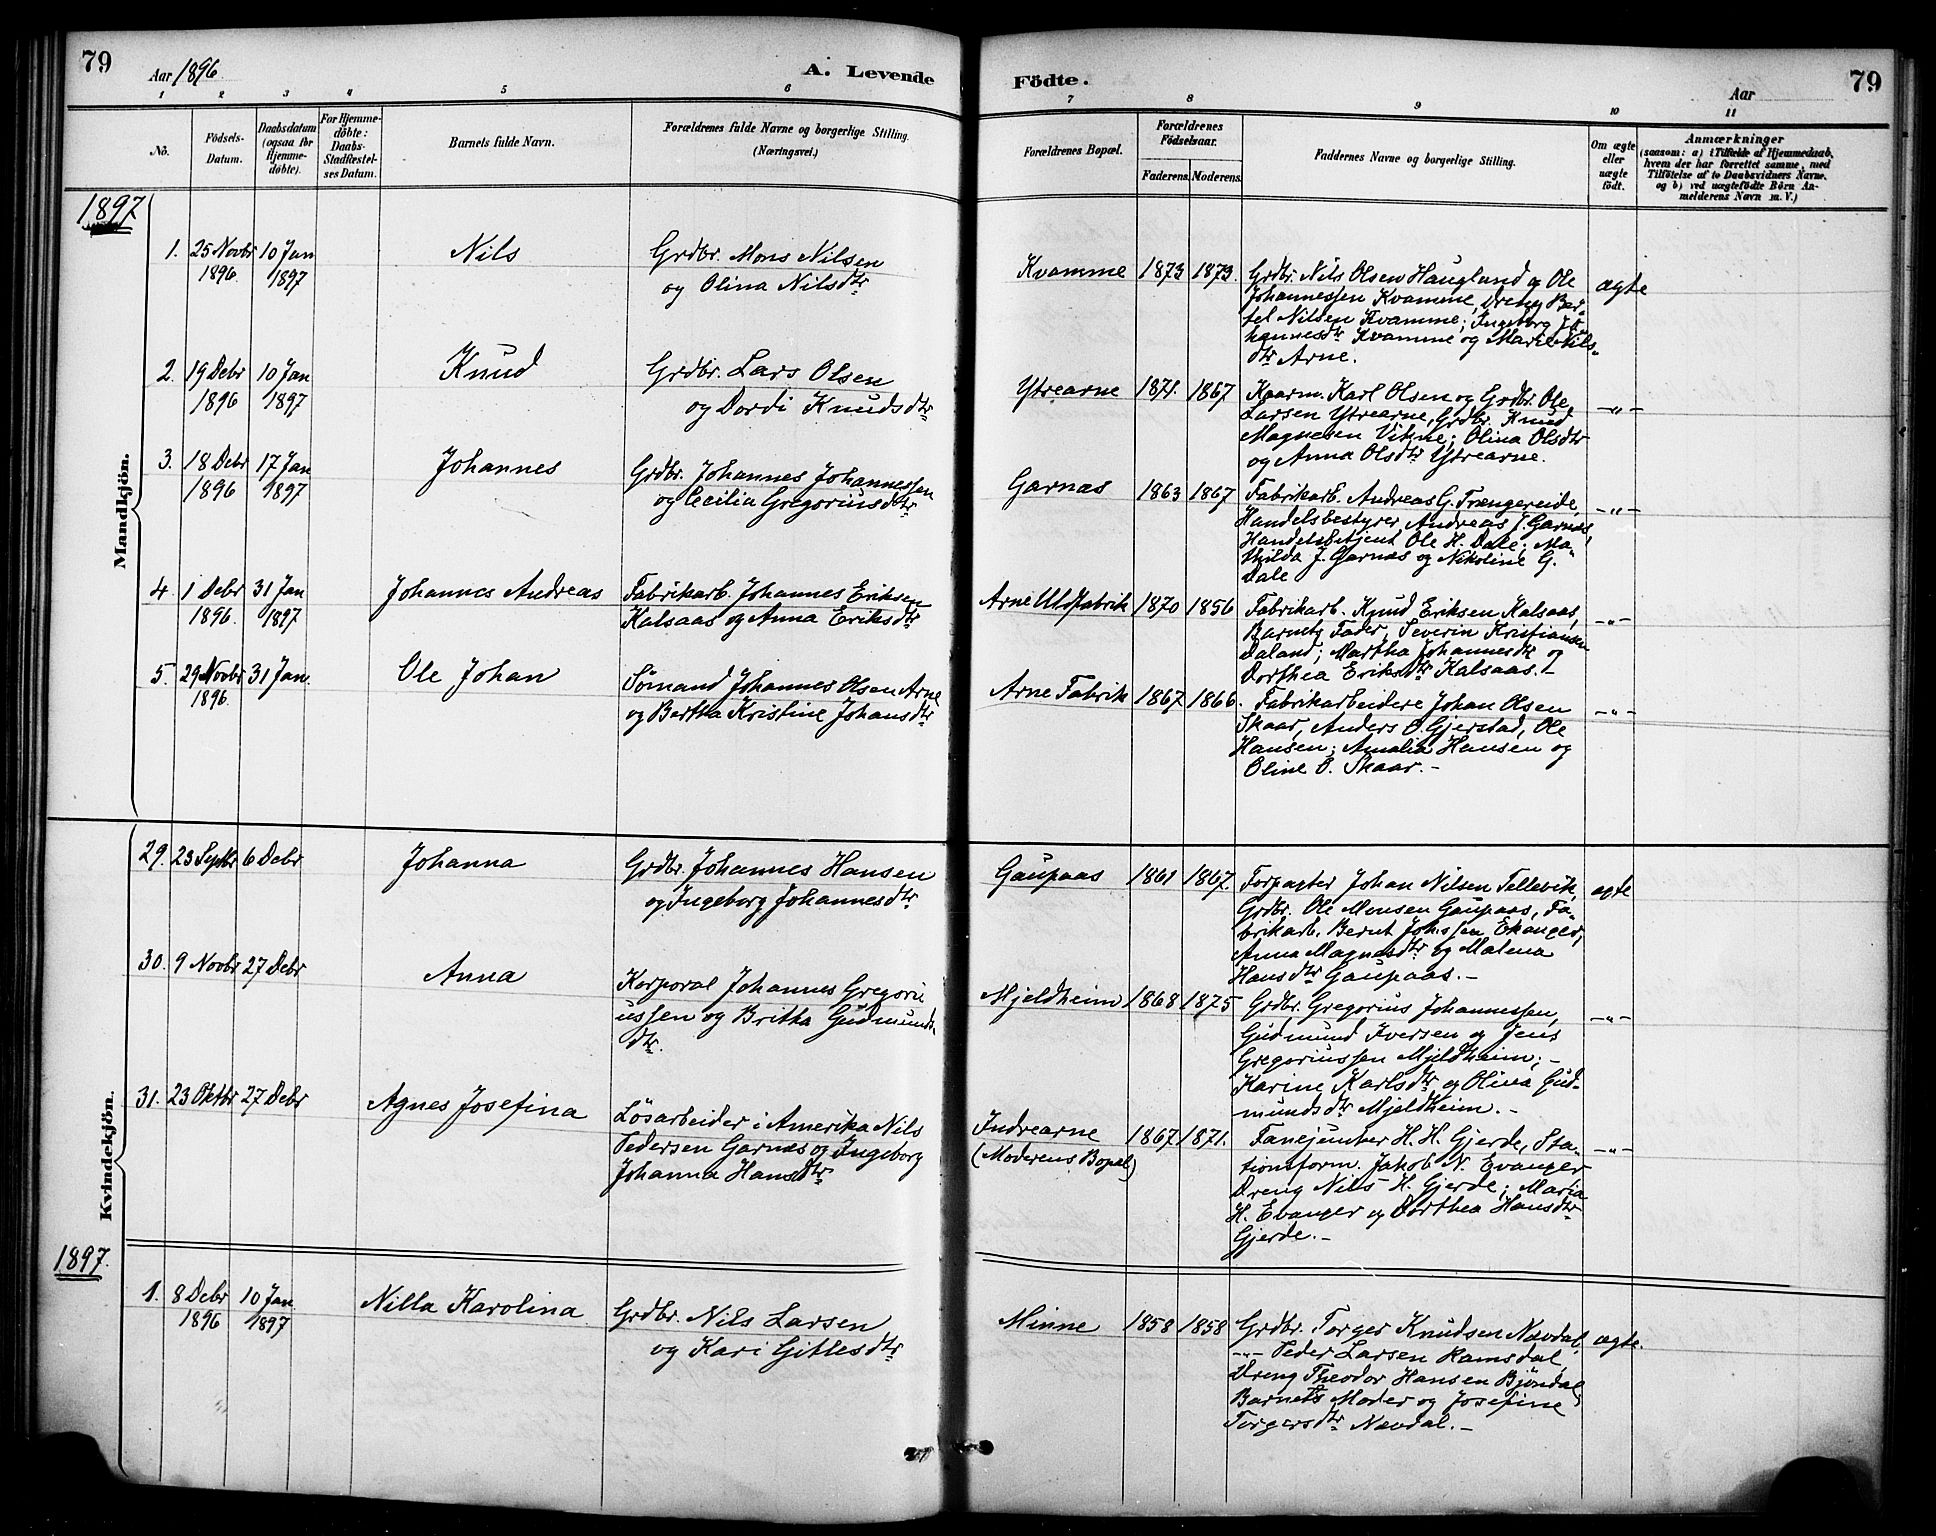 79
Aar 1896.
A. Levende
Födte.
Aar
79
1 2 3 4 5 6 7 8 9 10 11
No.
Födsels-
Datum.
Daabsdatum
(ogsaa for
Hjemme-
döbte).
For Hjemme-
döbte:
Daabs-
Stadfæstel-
ses Datum.
Barnets fulde Navn.
Forældrenes fulde Navne og borgerlige Stilling.
(Næringsvei.)
Forældrenes Bopæl.
Forældrenes
Födselsaar.
Faderens. Moderens.
Faddernes Navne og borgerlige Stilling.
Om ægte
eller
uægte
födt.
Anmærkninger
(saasom: a) i Tilfælde af Hjemmedaab,
hvem der har forrettet samme, med
Tilföielse af to Daabsvidners Navne,
og b) ved uægtefödte Börn An-
melderens Navn m. V.)
Mandkjön.
1897
1. 25 Novbr 10 Jan Nils Grdbr. Mons Nilsen
1896 1897 og Olina Nilsdtr
Kvamme 1873 1873. Grdbr. Nils Olsen Haugland og Ole ægte
Johannessen Kvamme, Dreng Ber-
tel Nilsen Kvamme; Ingeborg Jo-
hannesdtr Kvamme og Mari Nils-
dtr Arne.
2. 19 Debr 10 Jan Knud Grdbr. Lars Olsen
1896 1897 og Dordi Knudsdtr
Ytrearne 1871. 1867 Kaarm. Karl Olsen og Grdbr. Ole -"-
Larsen Ytrearne, Grdbr. Knud
Magnesen Vikne; Olina Olsdtr
og Anna Olsdtr Ytrearne.
3. 18 Debr 17 Jan Johannes Grdbr. Johannes Johannessen
1896 1897 og Cecilia Gregoriusdtr
Garnæs 1863 1867 Fabrikarb. Andreas G. Trængereide, -"-
Handelsbestyrer Andreas J. Garnæs,
Handelsbetjent Ole H. Dale; Ma-
thilda J. Garnæs og Nikoline G.
Dale
4. 1 Debr 31 Jan Johannes Andreas Fabrikarb. Johannes Eriksen
1896. 1897 Kalsaas og Anna Eriksdtr
Arne Uldfabrik 1870 1856 Fabrikarb. Knud Eriksen Kalsaas, -"-
Barnets Fader, Severin Kristiansen
Daland; Martha Johannesdtr og
Dorthea Eriksdtr Kalsaas.-
5. 29 Novbr 31 Jan. Ole Johan Sömand Johannes Olsen Arne
1896. og Bertha Kristine Johansdtr
Arne Fabrik 1867 1866. Fabrikarbeidere Johan Olsen -"-
Skaar, Anders O. Gjerstad, Ole
Hansen; Amalia Hansen og
Oline O. Skaar.-
Kvindekjön.
29. 23 Septbr 6 Debr Johanna Grdbr. Johannes Hansen
og Ingeborg Johannesdtr
Gaupaas 1861 1867. Forpagter Johan Nilsen Tellevik, ægte
Grdbr. Ole Monsen Gaupaas, Fa-
brikarb. Bernt Johssen Ekanger;
Anna Magnesdtr og Malena
Hansdtr Gaupaas.-
30. 9 Novbr 27 Debr Anna Korporal Johannes Gregori
ussen og Britha Gudmunds-
dtr.
Mjeldheim 1868 1875 Grdbr. Gregorius Johannessen, -"-
Gudmund Iversen og Jens
Gregoriussen Mjeldheim;-
Karine Karlsdtr og Olina Gud-
mundsdtr Mjeldheim.-
31. 23 Oktbr 27 Debr Agnes Josefina Lösarbeider i Amerika Nils
Pedersen Garnæs og Ingeborg
Johanna Hansdtr
Indrearne 1867 1871. Fanejunker H. H. Gjerde, Sta- -"-
(Moderens Bopæl) tionsform. Jakob N. Evanger
Dreng Nils H. Gjerde; Maria
H. Evanger og Dorthea Hansdtr
Gjerde.-
1897.
1. 8 Debr 10 Jan. Nilla Karolina Grdbr. Nils Larsen
1896 1897 og Kari Gitlesdtr
Minne 1858 1858 Grdbr. Torger Knudsen Nævdal, ægte.
-"- Peder Larsen Ramsdal,
Dreng Theodor Hansen Bjöndal;
Barnets Moder og Josefine
Torgersdtr Nævdal.-